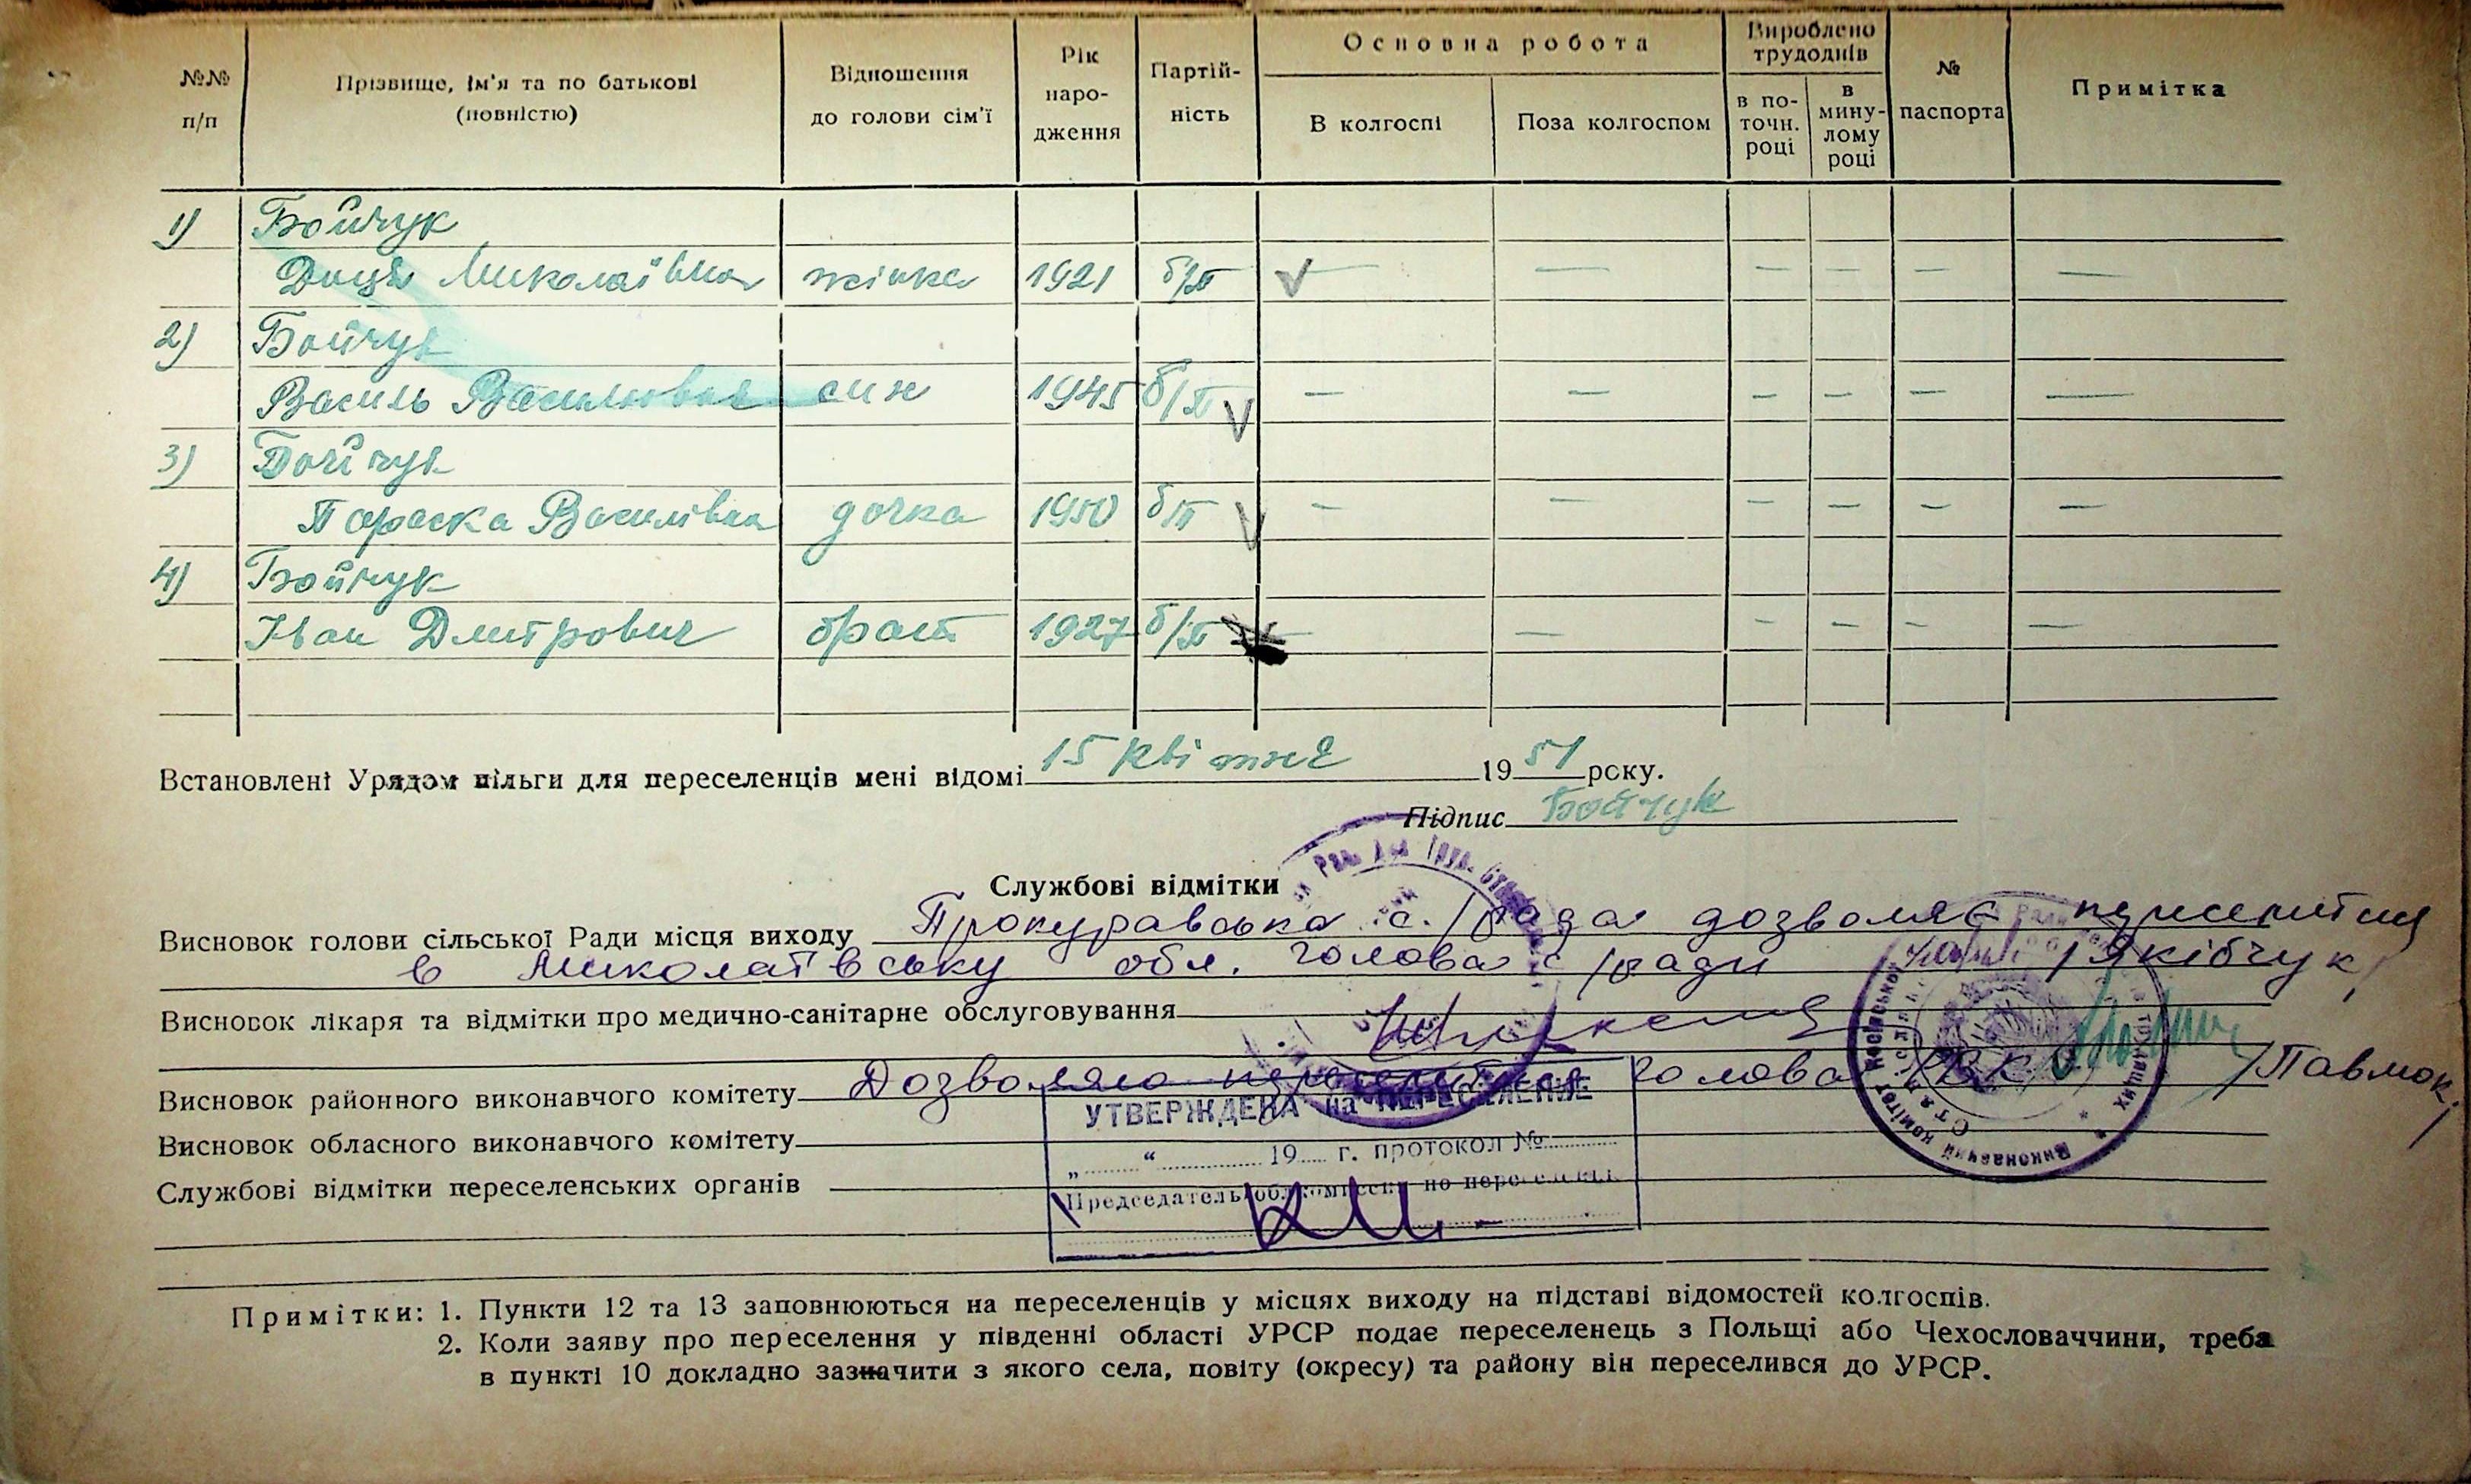 №№ п/п | Прізвище, ім'я та по батькові (повністю) | Відношення до голови сім'ї | Рік народження | Партійність | Основна робота | Вироблено трудоднів | № паспорта | Примітка
В колгоспі | Поза колгоспом | в поточн. році | в минулому році
1) Бойчук
Миколаївна жінка 1921 б/п — — — — —
2) Бойчук
Василь Васильович син 1945 б/п — — — — — —
3) Бойчук
Параска Василівна дочка 1950 б/п — — — — — —
4) Бойчук
Іван Дмитрович брат 1927 б/п — — — — — —
Встановлені Урядом пільги для переселенців мені відомі 15 квітня 1951 року.
Підпис Бойчук
Службові відмітки
Висновок голови сільської Ради місця виходу Прокуравська с./рада дозволяє переселитися
в Миколаївську обл. голова с/ради /Якібчук/
Висновок лікаря та відмітки про медично-санітарне обслуговування
Висновок районного виконавчого комітету Дозволяю переселитися Голова РВК
УТВЕРЖДЕНА на ПЕРЕСЕЛЕНИЕ
Висновок обласного виконавчого комітету
„ “ 19 г. протокол №
Службові відмітки переселенських органів
Председатель обл. комиссии по переселен.
Виконавчий комітет Косівської
трудящих
Примітки: 1. Пункти 12 та 13 заповнюються на переселенців у місцях виходу на підставі відомостей колгоспів.
2. Коли заяву про переселення у південні області УРСР подає переселенець з Польщі або Чехословаччини, треба
в пункті 10 докладно зазначити з якого села, повіту (окресу) та району він переселився до УРСР.